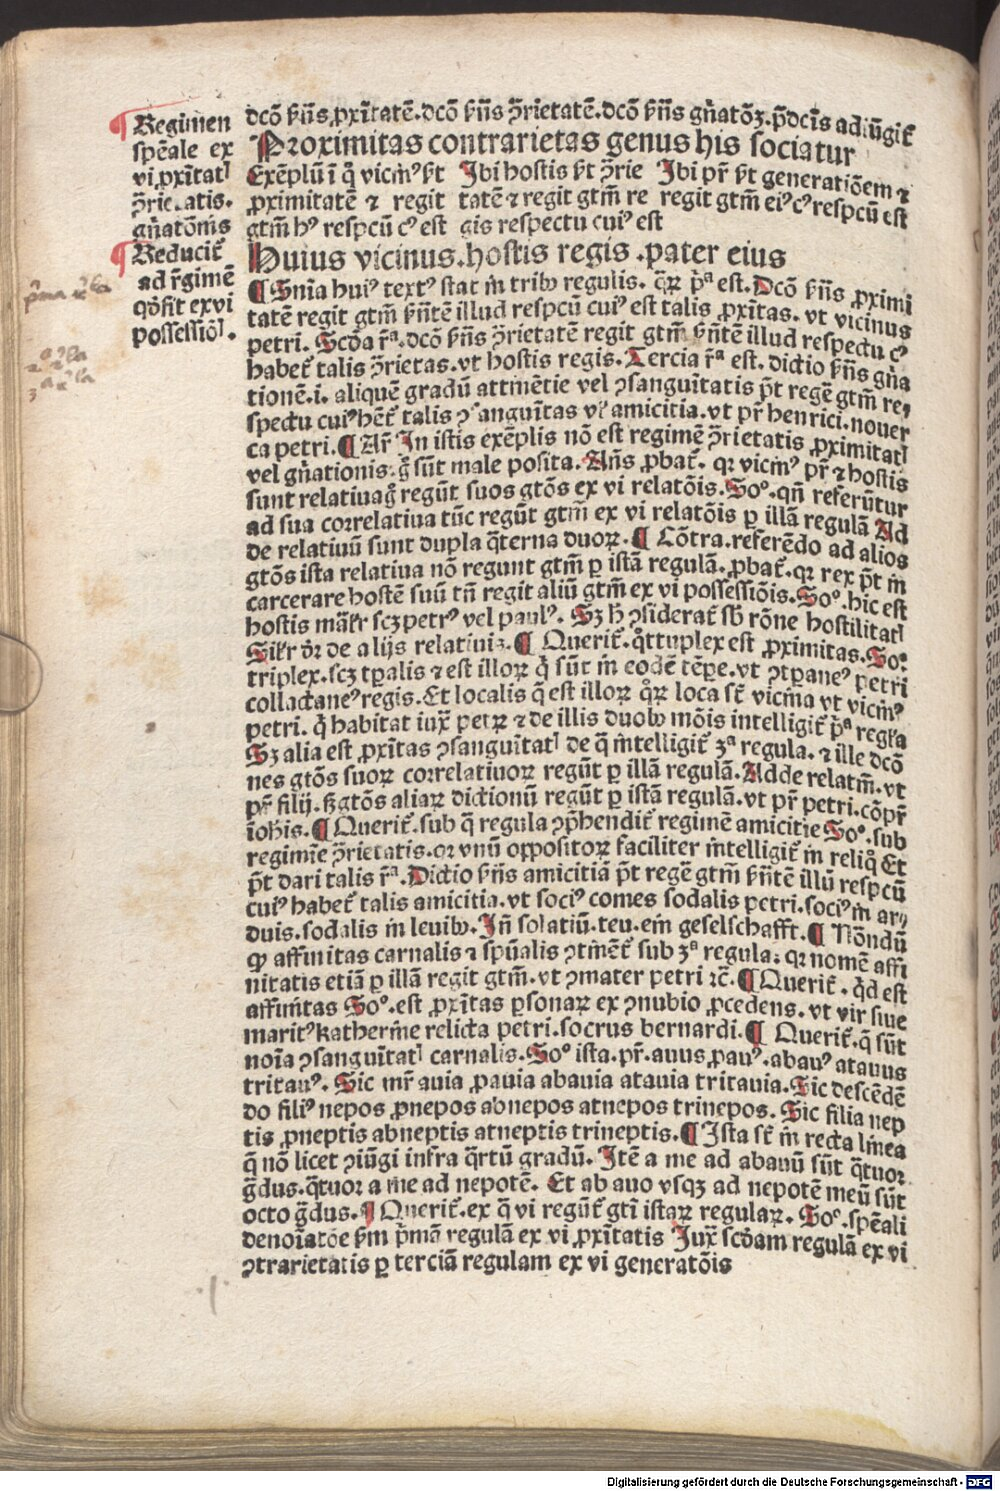 Regimen
spēale ex
vi ꝓxītatꝭ
ꝯ̄rietatis.
gn̄atōnis
Reducit̄
ad r̄gimē
qd̓ fit ex vi
possessiōꝭ.
dcō ẜn̄s ꝓxītatē. dcō ẜn̄s ꝯ̄rietatē. dcō ẜn̄s gn̄atōꝫ. p̄dcīs adiūgit̄
Proximitas contrarietas genus his sociatur
Exēplū ī q̊ vicinꝰ ẜt Ibi hostis ẜt ꝯ̄rie Ibi pr̄ ẜt generatiōem ⁊
ꝓximitatē ⁊ regit tatē ⁊ regit gtm̄ re regit gtm̄ eiꝰ cꝰ respcū est
gtm̄ hꝰ respcū cꝰ est gis respectu cuiꝰ est
Huius vicinus. hostis regis. pater eius
¶ Snīa huiꝰ textꝰ stat in tribꝰ regulis. quaꝝ pͣ est. Dcō ẜn̄s ꝓximi
tatē regit gtm̄ ẜn̄tē illud respcū cuiꝰ est talis ꝓxītas. vt vicinus
petri. Scd̓a rͣ. dcō ẜn̄s ꝯ̄rietatē regit gtm̄ ẜn̄tē illud respectu cꝰ
habet̄ talis ꝯ̄rietas. vt hostis regis. Tercia rͣ est. dictio ẜn̄s gn̄a
tionē. i. aliquē gradū attinētie vel ꝯsanguītatis pt̄ regē gtm̄ re
spectu cuiꝰ hēt̄ talis ꝯsanguītas vel amicitia. vt pr̄ henrici. nouer
ca petri. ¶ Ar̄ In istis exēplis nō est regimē ꝯ̄rietatis ꝓximitatꝭ
vel gn̄ationis. g̊ sūt male posita. Ans̄ ꝓbat̄. qꝛ vicinꝰ pr̄ ⁊ hostis
sunt relatiua g̊ regūt suos gtōs ex vi relatōis. Soꝰ. qn̄ referūtur
ad sua correlatiua tūc regūt gtm̄ ex vi relatōis ꝑ illā regulā Ad
de relatiuū sunt dupla q̄terna duoꝝ. ¶ Cōtra. referēdo ad alios
gtōs ista relatiua nō regunt gtm̄ ꝑ istā regulā. ꝓbat̄. qꝛ rex pt̄ in
carcerare hostē suū tn̄ regit aliū gtm̄ ex vi possessiōis. Soꝰ. hic est
hostis māl̓r scꝫ petrꝰ vel paulꝰ. Sꝫ h̄ ꝯsiderat̄ sb̄ rōne hostilitatꝭ
Sil̓r dr̄ de alijs relatiuis. ¶ Querit̄. q̊ttuplex est ꝓximitas. Soꝰ
triplex. scꝫ tꝑalis ⁊ est illoꝝ q̄ sūt in eodē tēpe. vt ꝯtꝑaneꝰ petri
collactaneꝰ regis. Et localis q̄ est illoꝝ quoꝝ loca sūt vicina vt vicinꝰ
petri. q̄ habitat iuxͣ petꝝ ⁊ de illis duobꝰ mōis intelligit̄ pͣ regl̓a
Sꝫ alia est ꝓxītas ꝯsanguītatꝭ de q̄ intelligit̄ 3ͣ regula. ⁊ ille dcō
nes gtōs suoꝝ correlatiuoꝝ regūt ꝑ illā regulā. Adde relatm̄. vt
pr̄ filij. sꝫ gtōs aliaꝝ dictionū regūt ꝑ istā regulā. vt pr̄ petri. cōpr̄
iohīs. ¶ Querit̄. sub q̄ regula ꝯp̄hendit̄ regimē amicitie Soꝰ. sub
regimīe ꝯ̄rietatis. qꝛ vnū oppositoꝝ faciliter intelligit̄ in reliq̊ Et
pt̄ dari talis rͣ. Dictio ẜn̄s amicitiā pt̄ regē gtm̄ ẜn̄tē illū respcū
cuiꝰ habet̄ talis amicitia. vt sociꝰ comes sodalis petri. sociꝰ in ar
duis. sodalis in leuibꝰ. Iñ solatiū. teu. em̄ geselschafft. ¶ Nōndū
ꝙ affinitas carnalis ⁊ spūalis ꝯtinēt̄ sub 3ͣ regula: qꝛ nomē affi
nitatis etiā ꝑ illā regit gtm̄. vt ꝯmater petri ⁊c̄. ¶ Querit̄. qd̓ est
affinitas Soꝰ. est ꝓxītas ꝑsonaꝝ ex ꝯnubio ꝓcedens. vt vir siue
maritꝰ katherine relicta petri. socrus bernardi. ¶ Querit̄. q̄ sūt
noīa ꝯsanguītatꝭ carnalis. Soꝰ ista. pr̄. auus ꝓauꝰ. abauꝰ atauus
tritauꝰ. Sic mr̄ auia ꝓauia abauia atauia tritauia. Sic descēdē
do filiꝰ nepos ꝓnepos abnepos atnepos trinepos. Sic filia nep
tis ꝓneptis abneptis atneptis trineptis. ¶ Ista sūt in recta linea
q̄ nō licet ꝯiūgi infra q̄rtū gradū. Itē a me ad abauū sūt q̄tuor
g̊dus. q̄tuor a me ad nepotē. Et ab auo vsqꝫ ad nepotē meū sūt
octo g̊dus. ¶ Querit̄. ex q̄ vi regūt̄ gtī istaꝝ regulaꝝ. Soꝰ. spēali
denoīatōe ẜm p̄mā regulā ex vi ꝓxītatis Iuxͣ scd̓am regulā ex vi
ꝯtrarietatis ꝑ terciā regulam ex vi generatōis
Digitalisierung gefördert durch die Deutsche Forschungsgemeinschaft - DFG